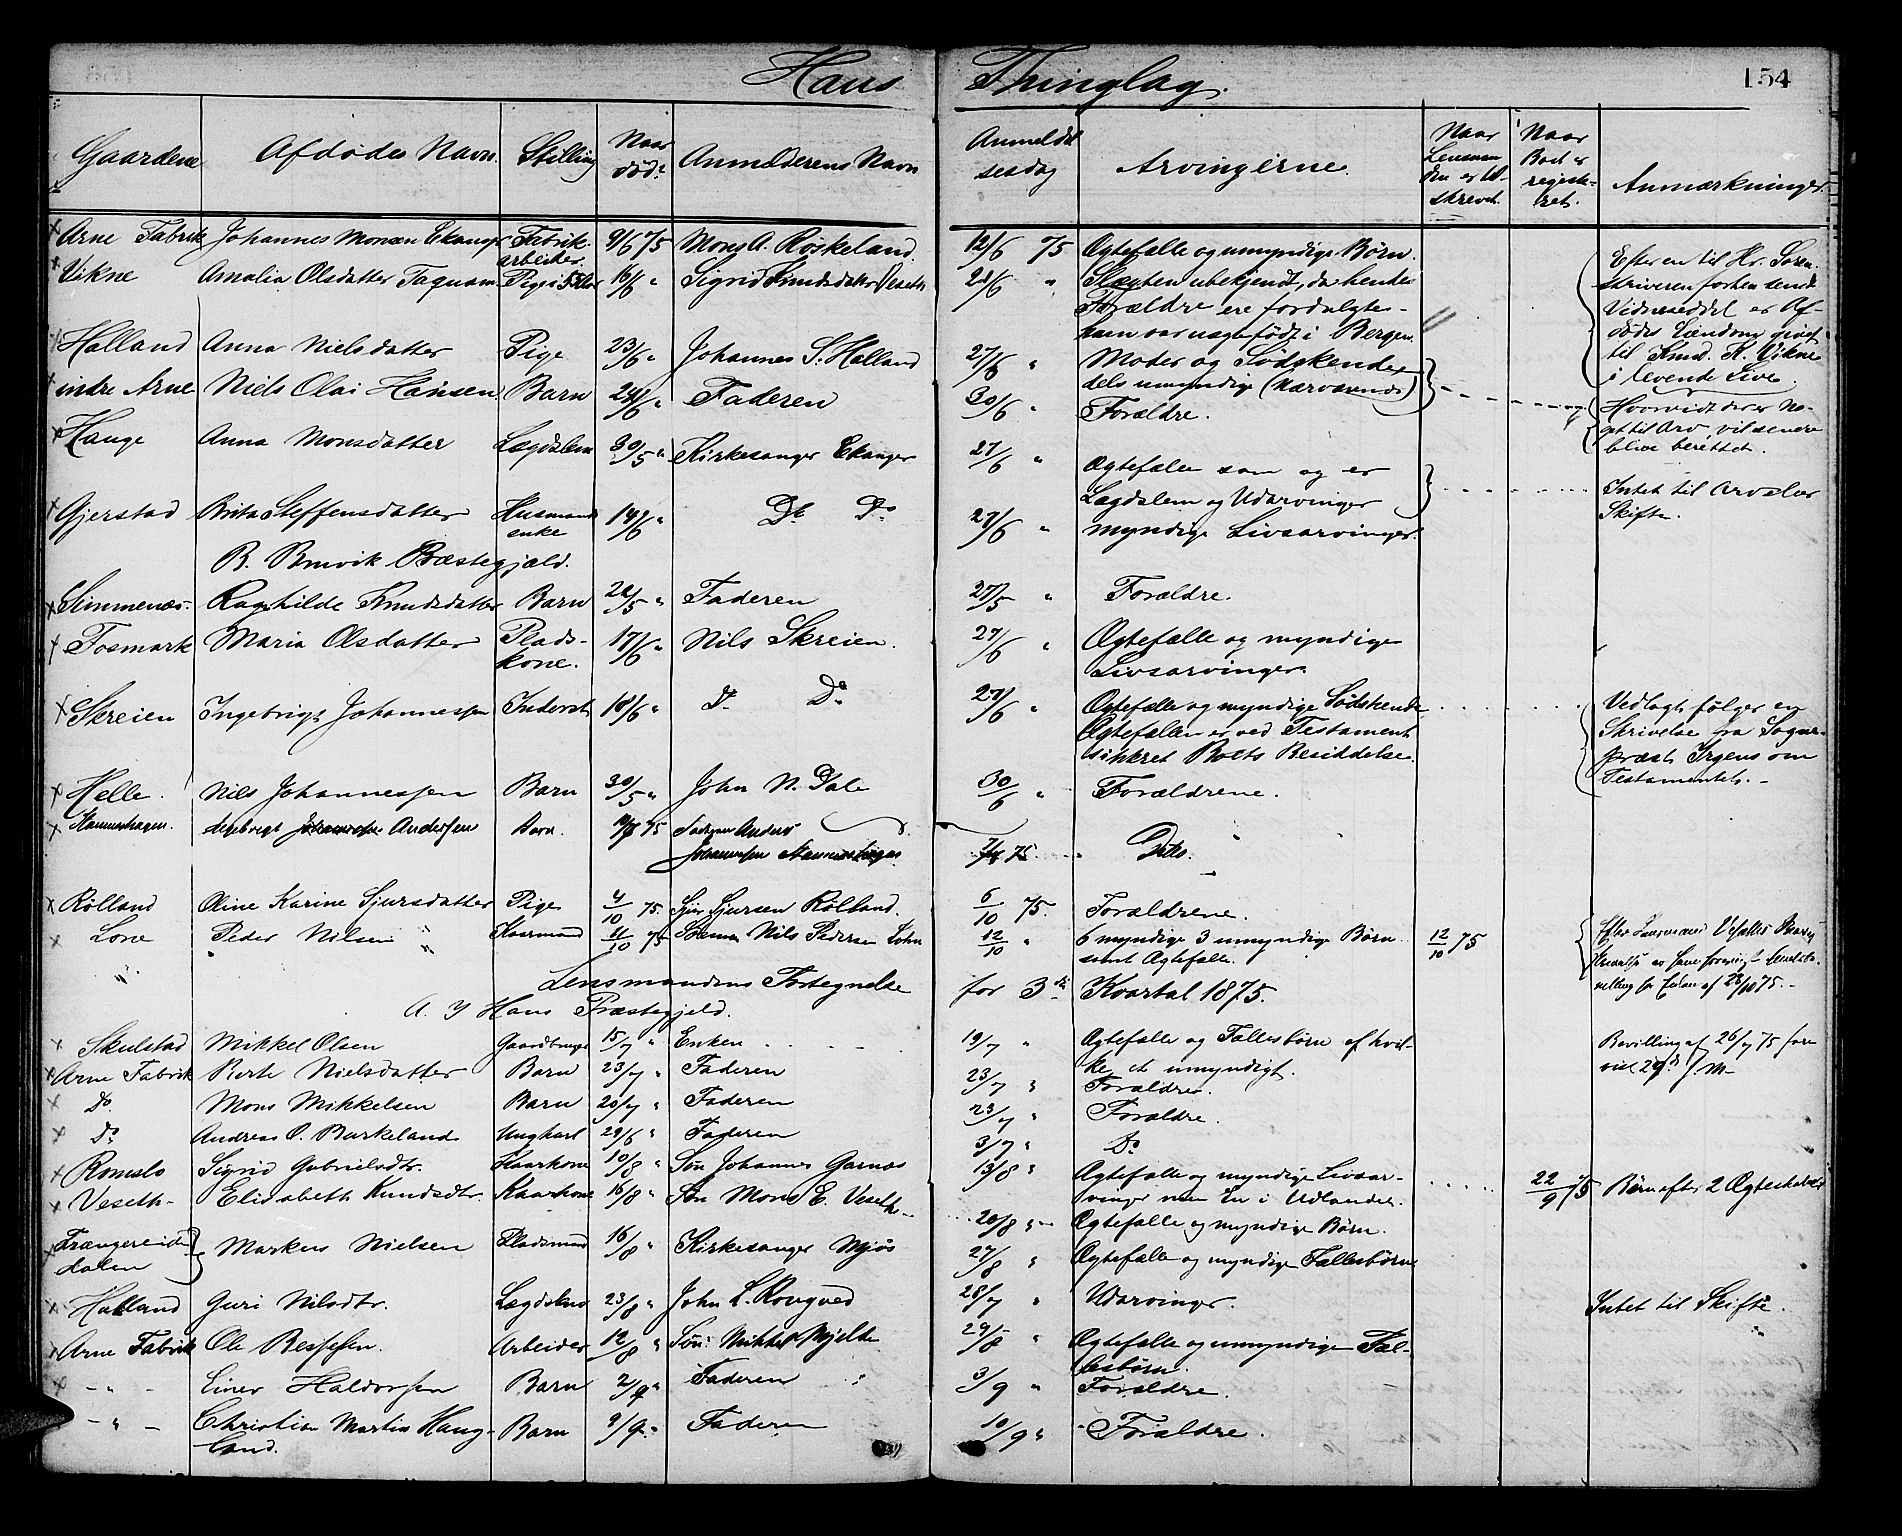 Haus Thinglag. 154
Gaardene Afdødes Navn. Stilling Naar død. Anmælderens Navn Anmeldelsesdag Arvingerne. Naar Lensmanden er tilskrevet. Naar Boet er registreret. Anmærkninger.
Arne Fabrik Johannes Monsen Ekanger Fabrikarbeider. 9/6 75 Mons A. Røskeland. 12/6 75 Ægtefælle og umyndige Børn.
Vikne Amalia Olsdatter Pige 16/6 " Sigrid Knudsdatter 21/6 " Slægten ubekjendt, da hendes
Forældre ere fordulgte-
hun var uægtefødt i Bergen.
Efter en til Hr. Soren-
skriveren forhen sendt
Vidneseddel er Af-
dødes Eiendom givet
til Knud K. Vikne
i levende Live.
Halland Anna Nielsdatter Pige 23/6 " Johannes S. Halland 27/6 " Moder og Sødskende
dels umyndige (Nærværende)
indre Arne Niels Olai Hansen Barn 24/6 " Faderen 30/6 " Forældre.
Hvorvidt der er No-
get til Arv vil senere
blive berettet.
Hauge Anna Monsdatter Lægdslem 30/5 " Kirkesanger Ekanger 27/6 " Ægtefælle som og er
Lægdslem og Udarvinger
Intet til Arv eller
Skifte.
Gjerstad Brita Steffensdatter Husmandsenke 14/6 " Do Do 27/6 " myndige Livsarvinger.
B. Bruvik Præstegjæld.
Simmenæs. Ragnhilde Knudsdatter Barn 22/5 " Faderen 27/5 " Forældre.
Fosmark Maria Olsdatter Pladskone. 17/6 " Nils Skreien. 27/6 " Ægtefælle og myndige
Livsarvinger.
Skreien Ingebrigt Johannessen Inderst 18/6 " Do Do 27/6 " Ægtefælle og myndige Sødskende
Ægtefællen er ved Testament
sikkret Boets Besiddelse.
Vedlagt følger en
Skrivelse fra Sogne-
præst Irgens om
Testamentet. -
Helle. Nils Johannessen Barn 30/5 " John N. Dale 30/6 " Forældrene.
Hammerhagen. Ingebrigt Johannessen Andersen Barn. 75 Faderen Anders
Johannessen Hammerhagen 75 Ditto.
Rølland Oline Karine Sjursdatter Pige 4/10 75. Sjur Sjursen Rølland. 6/10 75. Forældrene.
Lone Peder Nilsen Kaarmand 11/10 75 Sønnen Nils Pedersen Lohn 12/10 " 6 myndige 3 umyndige Børn
samt Ægtefælle. 12/10 75
Lensmandens Fortegnelse for 3die Kvartal 1875.
A. I Haus Præstegjeld.
Skulstad Mikkel Olsen Gaardbruger 15/7 " Enken 19/7 " Ægtefælle og Fællesbørn af hvil-
ke et umyndigt. Bevilling af 26/7 75
Arne Fabrik Berte Nielsdatter Barn 23/7 " Faderen 23/7 " Forældre.
Do Mons Mikkelsen Barn 20/7 " Faderen 23/7 " Forældre.
Do Andreas O. Barkeland Ungkarl 29/6 " Faderen 3/7 " Do
Romslo Sigrid Gabrielsdtr. Kaarkone 10/8 " Søn Johannes Garnæs 13/8 " Ægtefælle og myndige Livsar-
vinger men En i Udlandet. 22/9 75 Børn efter 2 Ægteskaber
Veseth- Elisabeth Knudsdtr. Kaarkone 16/8 " Søn Mons E. Veseth- 20/8 " Ægtefælle og myndige Børn.
Trængereid-
dalen Markus Nielsen Pladsmand 16/8 " Kirkesanger Mjøs 27/8 " Ægtefælle og myndige Fællesbørn
Halland Guri Nilsdtr. 23/8 " John L. Rongved 28/7 " Udarvinger. Intet til Skifte.
Arne Fabrik Ole Bessesen. Arbeider 12/8 " Søn Mikkel Mjelde 29/8 " Ægtefælle og umyndige Fæl-
lesbørn.
- " - Einer Haldorsen Barn 2/9 " Faderen 3/9 " Forældre.
- " - Christian Martin Haug-
land. Barn 9/9 " Faderen 10/9 " Forældre.